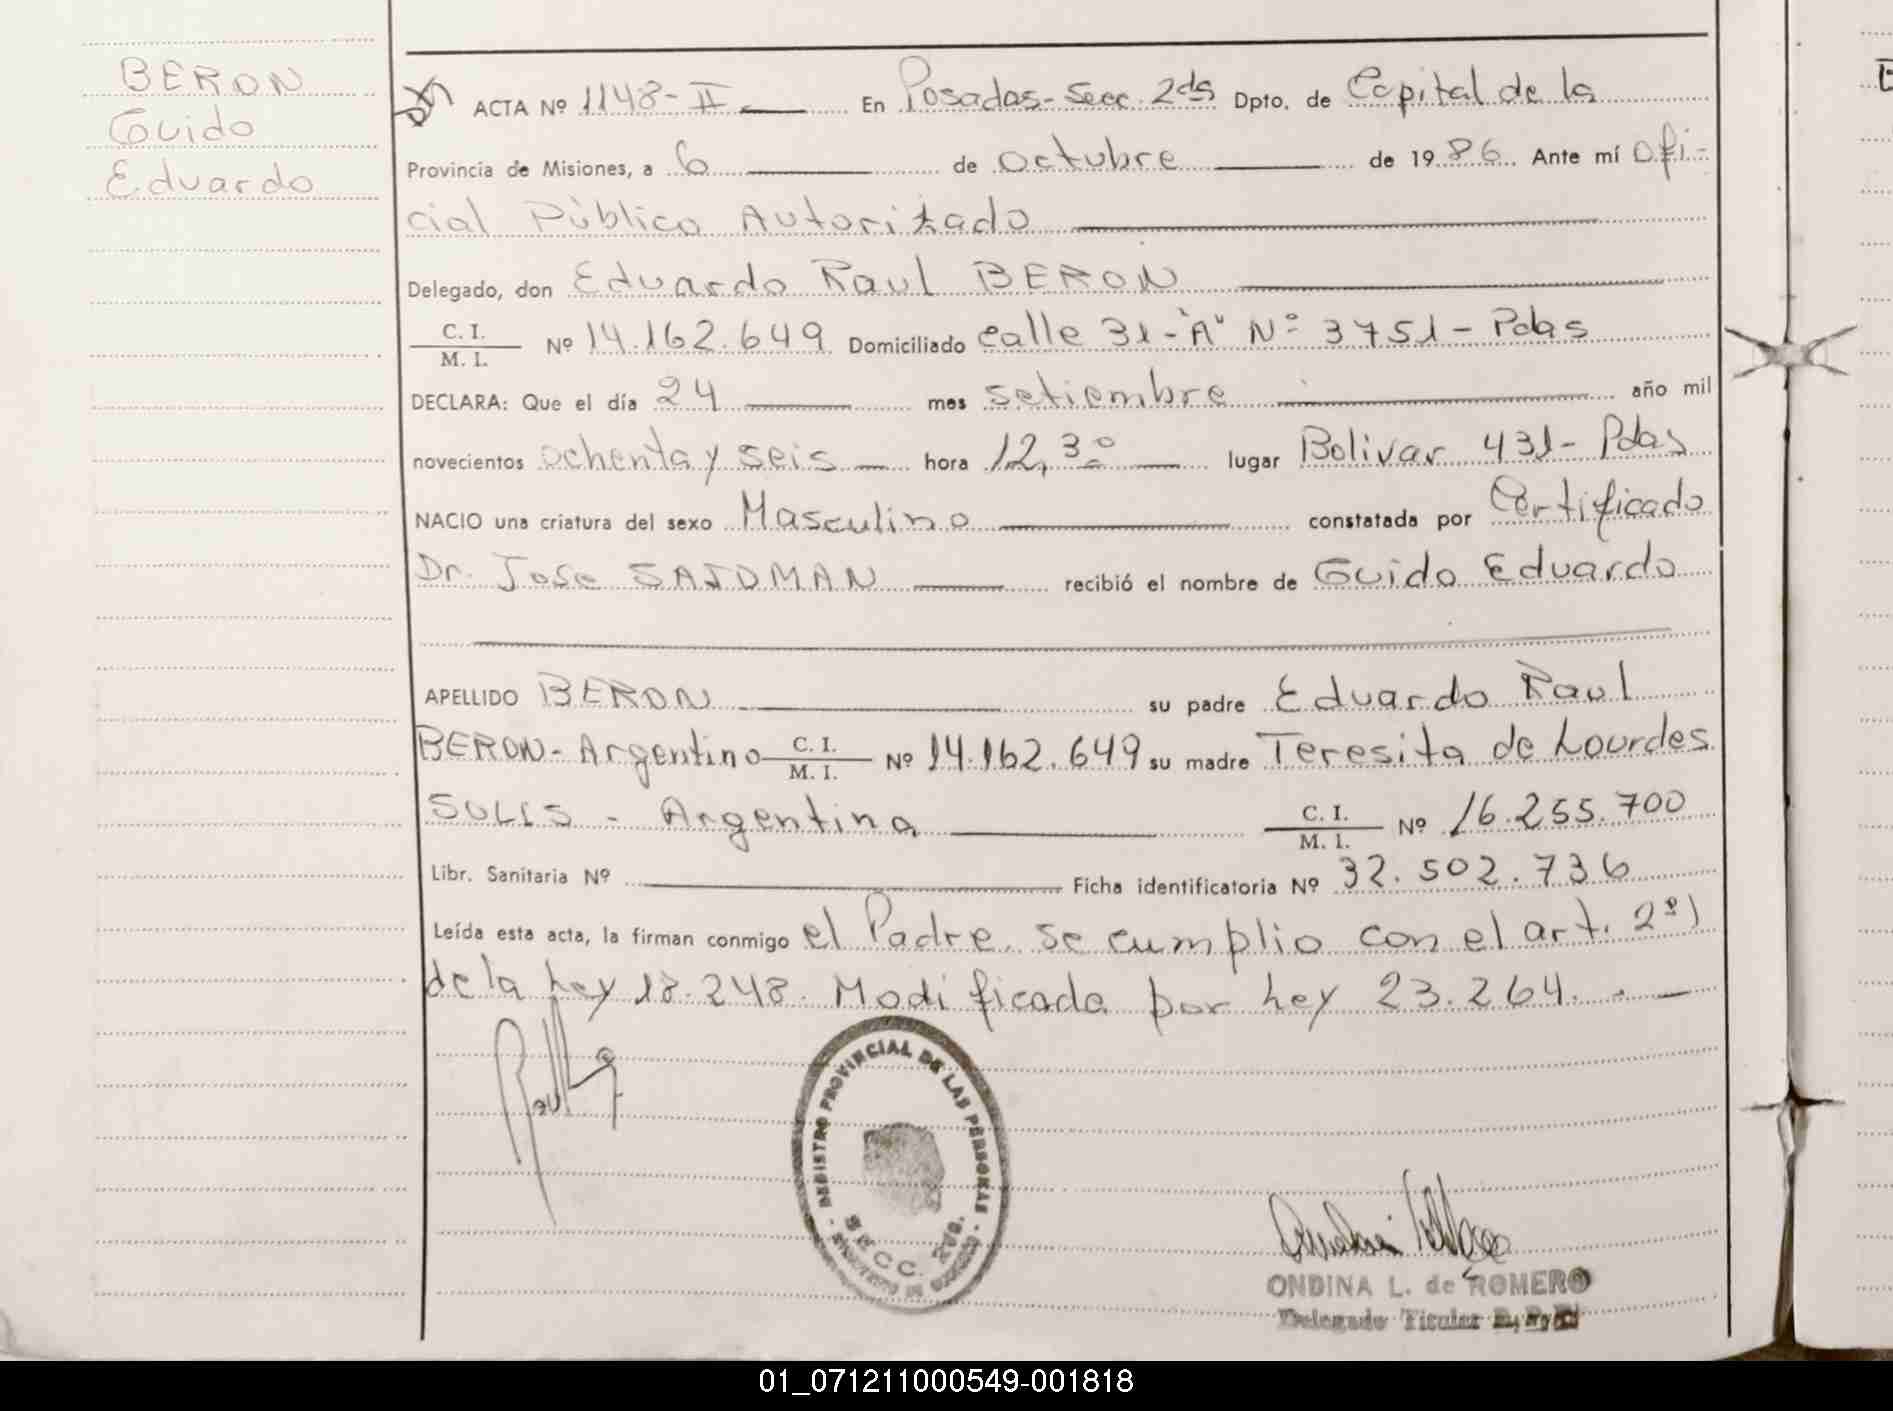 BERON
Guido
Eduardo
ACTA Nº 1148-II En Posadas-Secc. 2da Dpto. de Capital de la
Provincia de Misiones, a 6 de octubre de 1986. Ante mí Ofi-
cial Público Autorizado
Delegado, don Eduardo Raul BERON
C. I.
M. I. Nº 14.162.649 Domiciliado calle 31-"A" Nº 3751- Pdas
DECLARA: Que el día 24 mes setiembre año mil
novecientos ochenta y seis hora 12,30 lugar Bolivar 431- Pdas
NACIO una criatura del sexo Masculino constatada por Certificado
Dr. Jose SAIDMAN recibió el nombre de Guido Eduardo
APELLIDO BERON su padre Eduardo Raul
BERON- Argentino C. I.
M. I. Nº 14.162.649 su madre Teresita de Lourdes
SOLIS - Argentina C. I.
M. I. Nº 16.255.700
Libr. Sanitaria Nº Ficha identificatoria Nº 32.502.736
Leída esta acta, la firman conmigo el Padre. se cumplio con el art. 2º)
de la Ley 18.248. Modificada por Ley 23.264.
REGISTRO PROVINCIAL DE LAS PERSONAS
SECC. 2da.
ONDINA L. de ROMERO
Delegado Titular
01_071211000549-001818